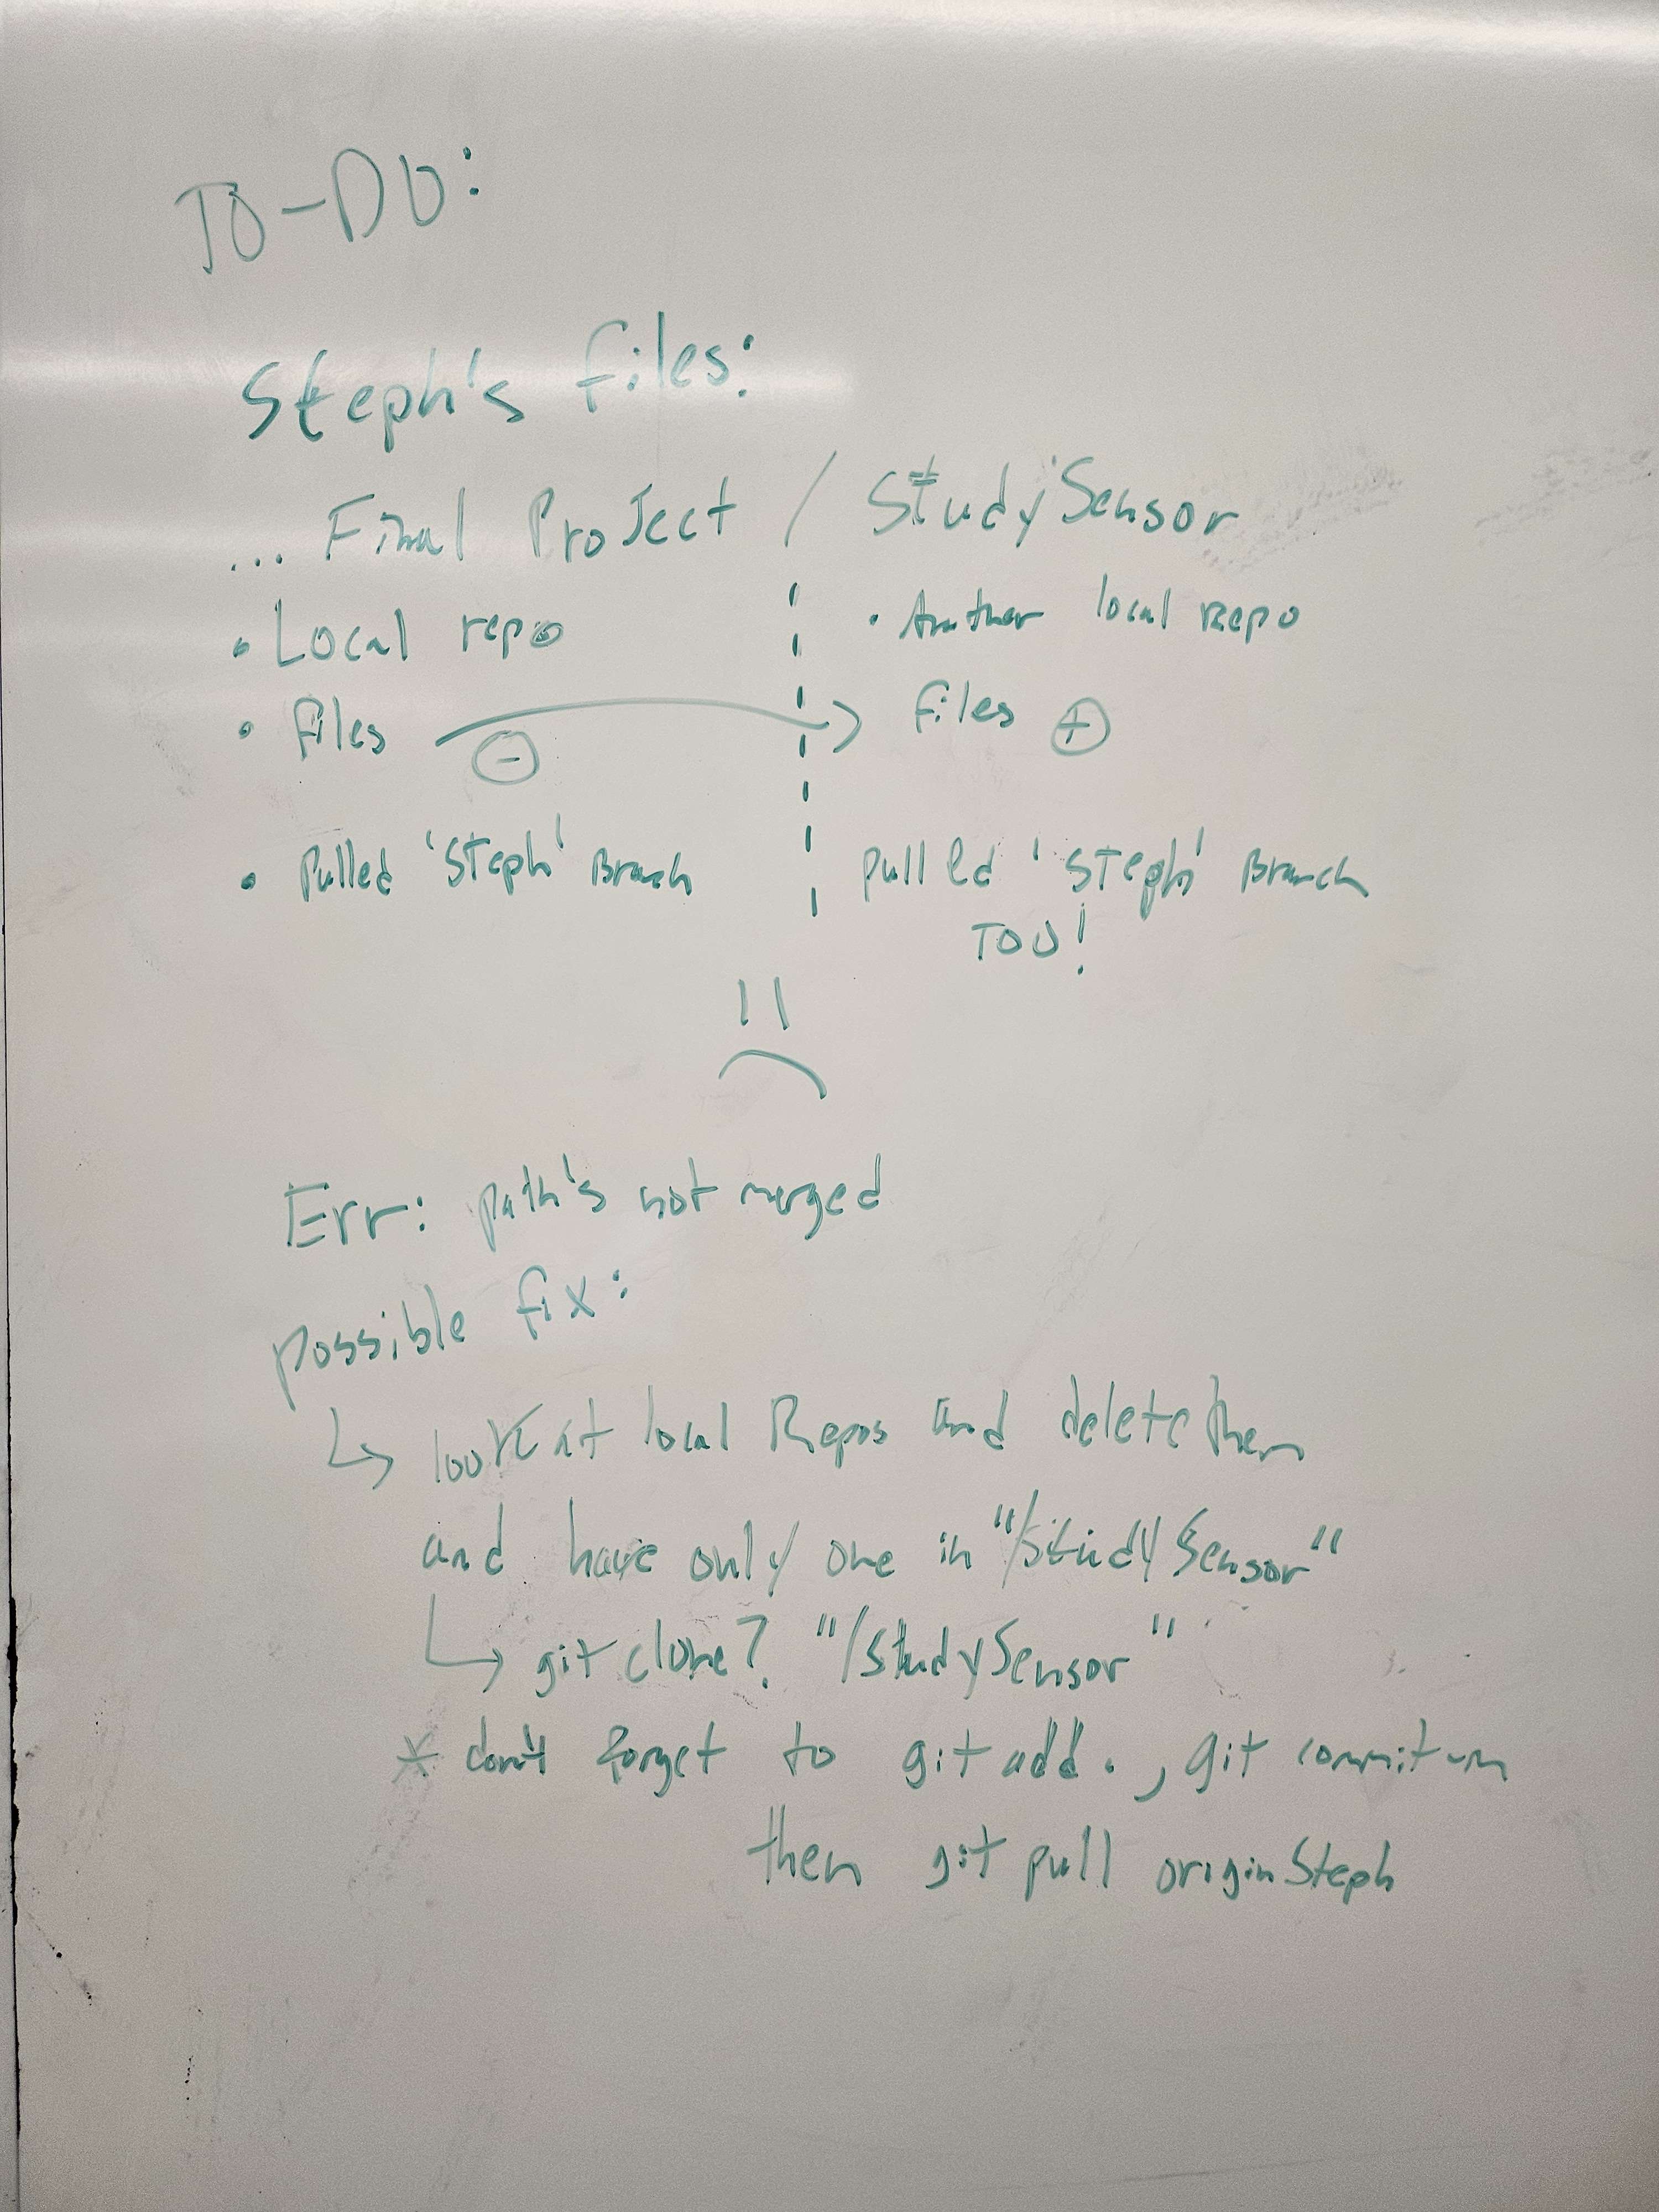 TO-DO:
Steph's files:
... Final ProJect / StudySensor
• Local repo • Another local repo
• files ⊖ → files ⊕
• Pulled 'Steph' Branch Pulled 'Steph' Branch
TOO!
Err: path's not merged
possible fix:
↳ look at local Repos and delete them
and have only one in "/StudySensor"
↳ git clone? "/StudySensor"
* don't forget to git add . , git commit -m
then git pull origin Steph